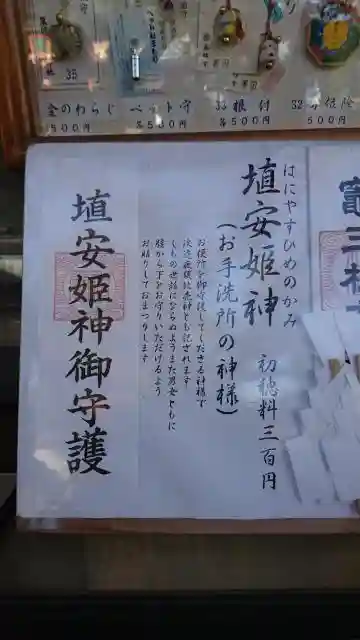 35
金のわらじ
500円
ペット守
各500円
33 根付
各500円
32
500円
はにやすひめのかみ
埴安姫神
(お手洗所の神様)
初穂料三百円
お便所を御守護してくださる神様で
しもの世話にならぬようまた男女ともに
腰から下をお守りいただけるよう
お祀りしておまつりします
埴安姫神御守護